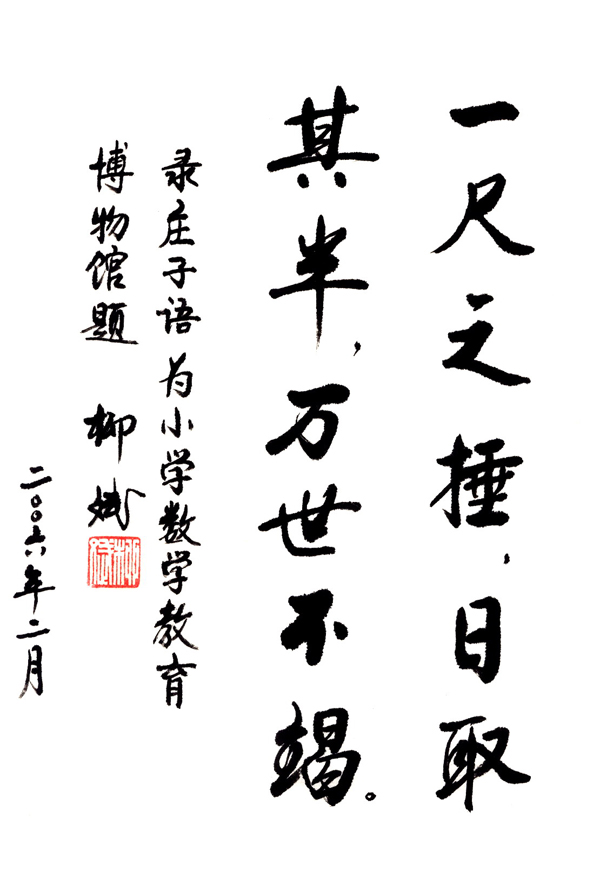 一尺之捶，日取
其半，万世不竭。
录庄子语为小学数学教育
博物馆题 柳斌
二〇〇六年二月